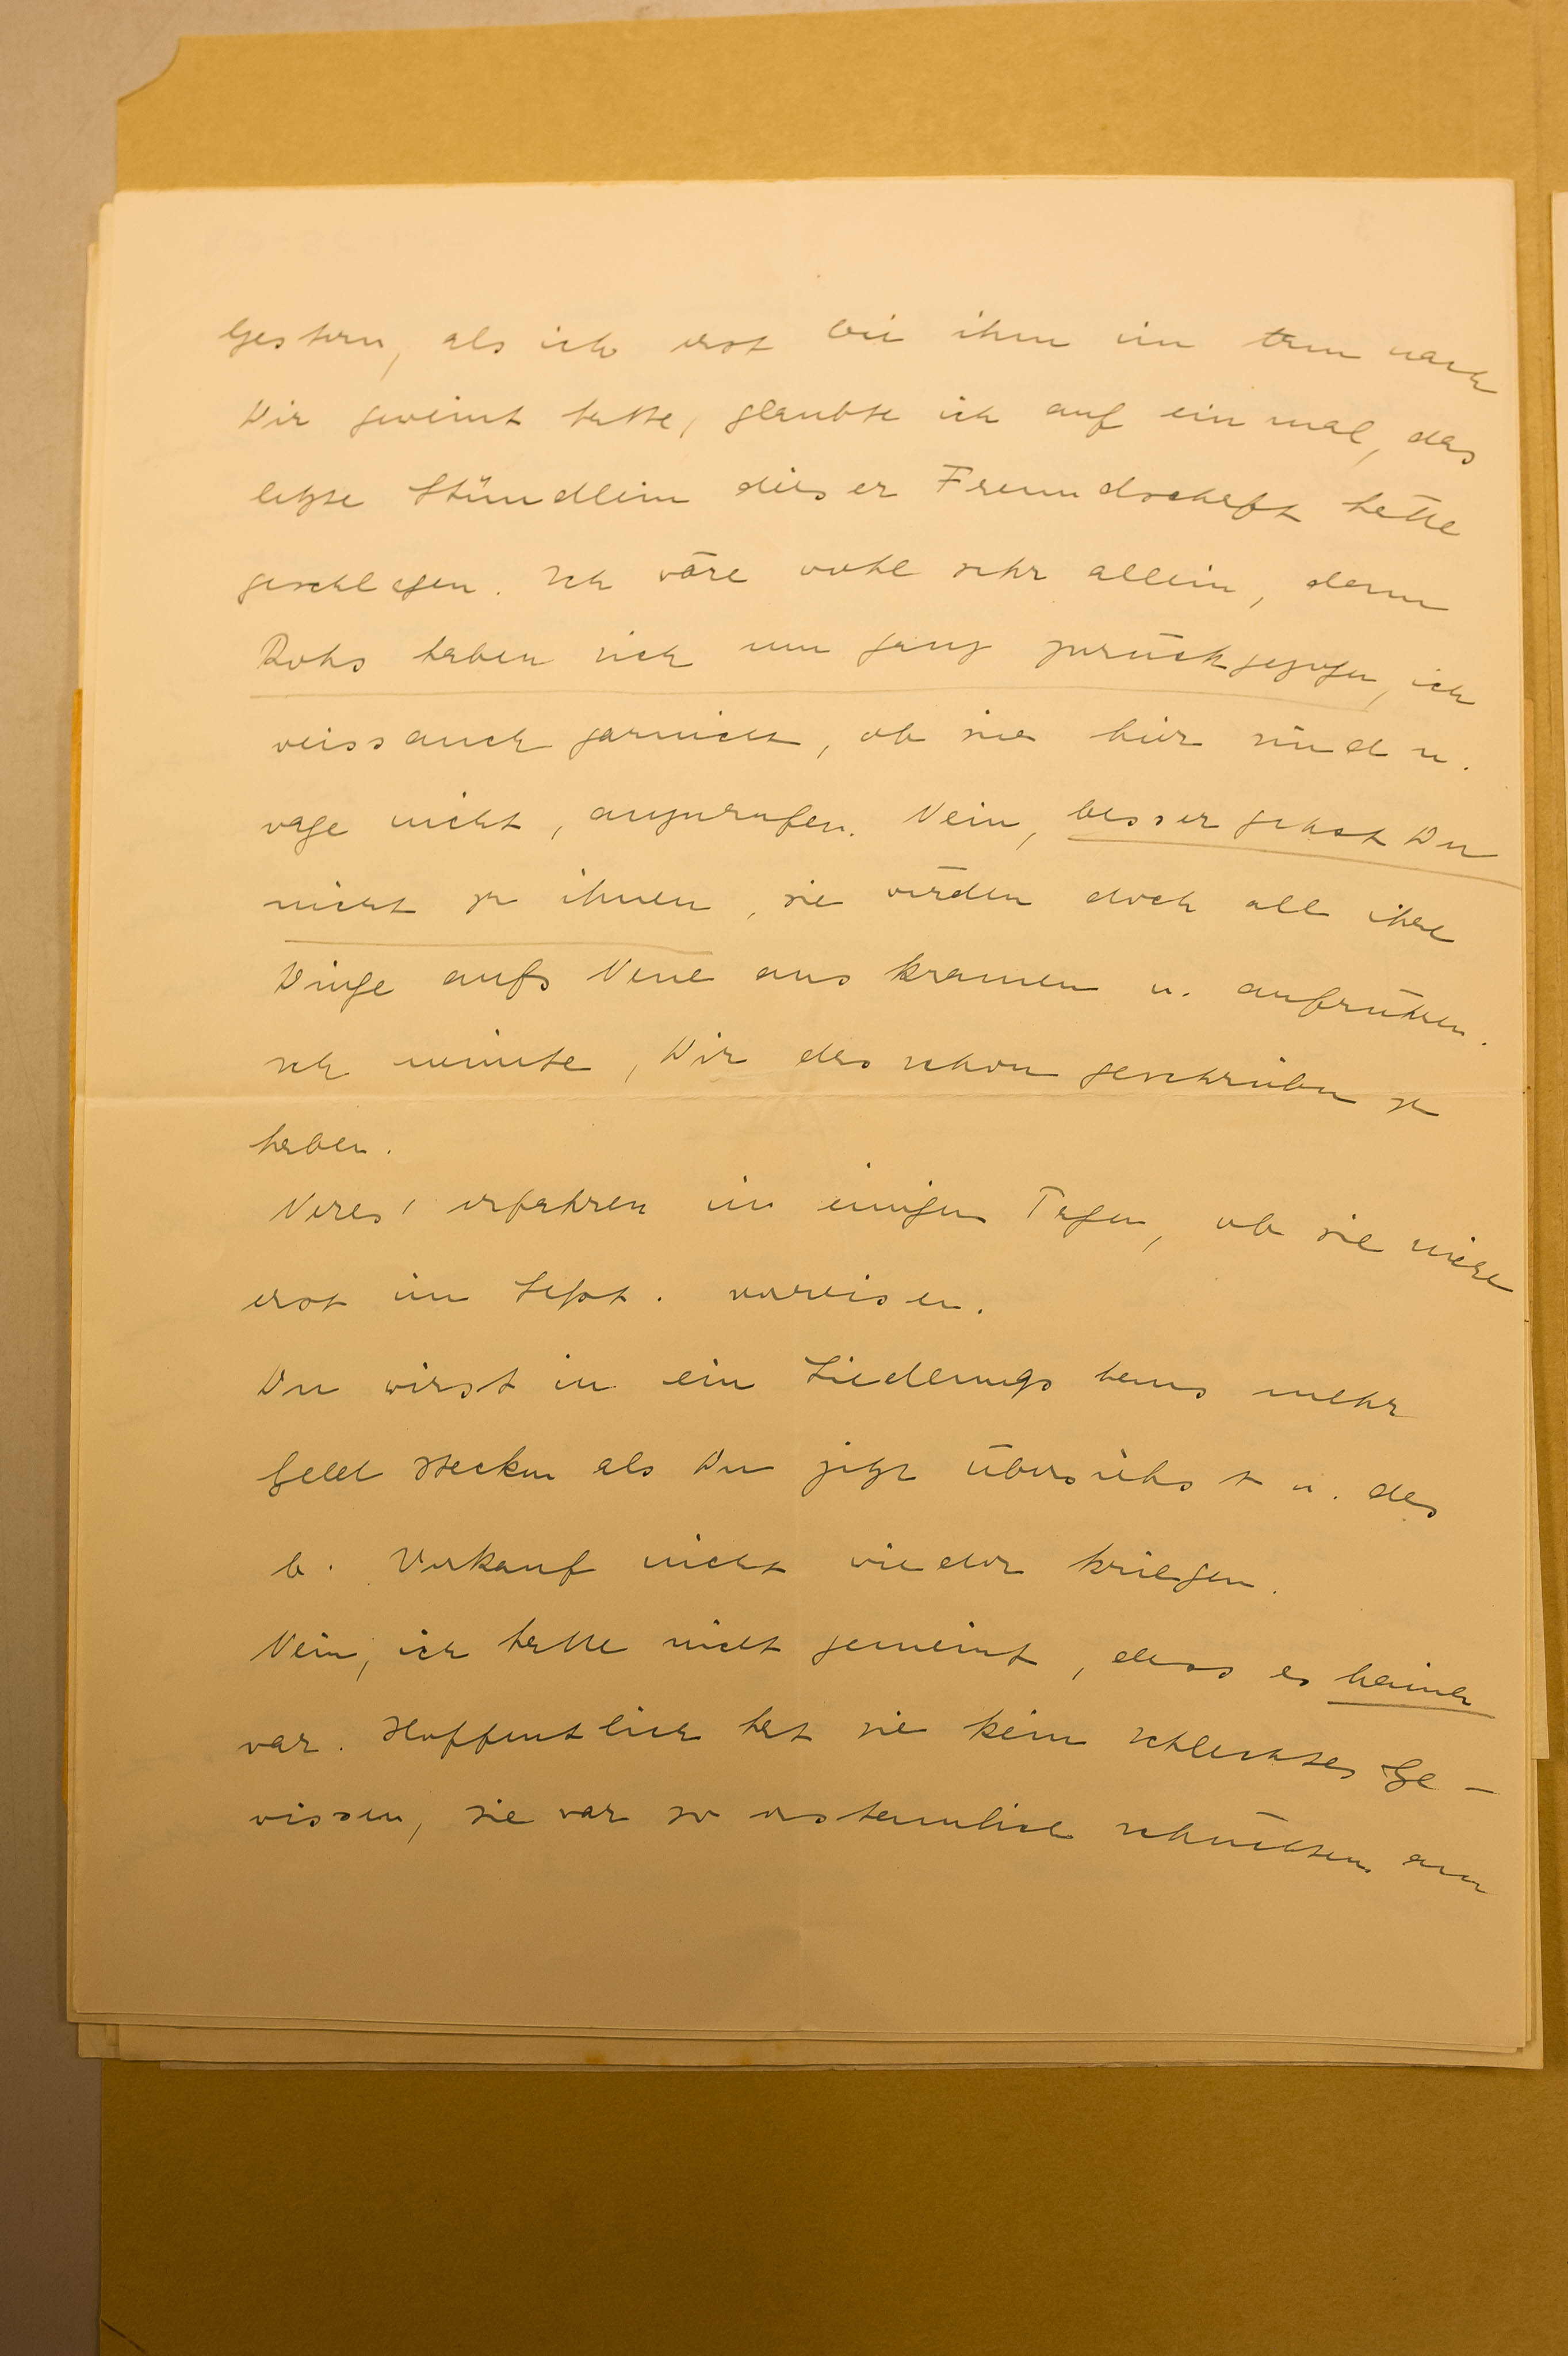 Gestern, als ich erst bei ihm im nach
Dir geweint hatte, glaubte ich auf ein mal, das
letzte Stündlein dieser Freundschaft hätte
geschlagen. Ich wäre wohl sehr allein, denn
haben sich nun ganz zurückgezogen, ich
weiss auch garnicht, ob sie hier sind u.
wage nicht, anzurufen. Nein, besser gehst Du
nicht zu ihnen, sie würden doch all ihre
Dinge aufs Neue aus kramen u. aufrühren.
Ich meinte, Dir das schon geschrieben zu
haben.
Veres' erfahren in einigen Tagen, ob sie nicht
erst im Sept. verreisen.
Du wirst in ein Siedlungs haus mehr
Geld stecken als Du jetzt übersiehst u. das
b. Verkauf nicht wieder kriegen.
Nein, ich hatte nicht gemeint, dass es
war. Hoffentlich hat sie kein schlechtes Ge-
wissen, sie war so erstaunlich schüchtern am